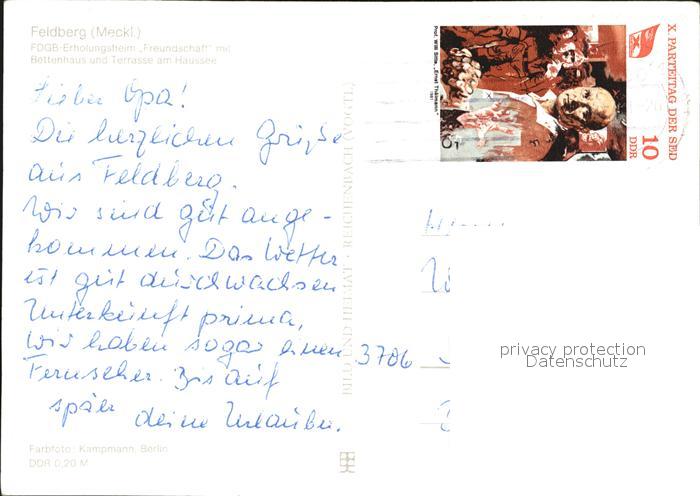 Feldberg (Meckl.)
FDGB-Erholungsheim „Freundschaft" mit
Bettenhaus und Terrasse am Haussee
Lieber Opa!
Die herzlichen Grüße
aus Feldberg.
Wir sind gut ange-
kommen. Das Wetter
ist gut durchwachsen
Unterkunft prima,
wir haben sogar einen
Fernseher. Bis auf
später deine Urlauber.
Farbfoto: Kampmann, Berlin
DDR 0,20 M
BILD UND HEIMAT · REICHENBACH (VOGTL)
Prof. Willi Sitte „Ernst Thälmann"
1981
X. PARTEITAG DER SED
10
DDR
3706
privacy protection
Datenschutz